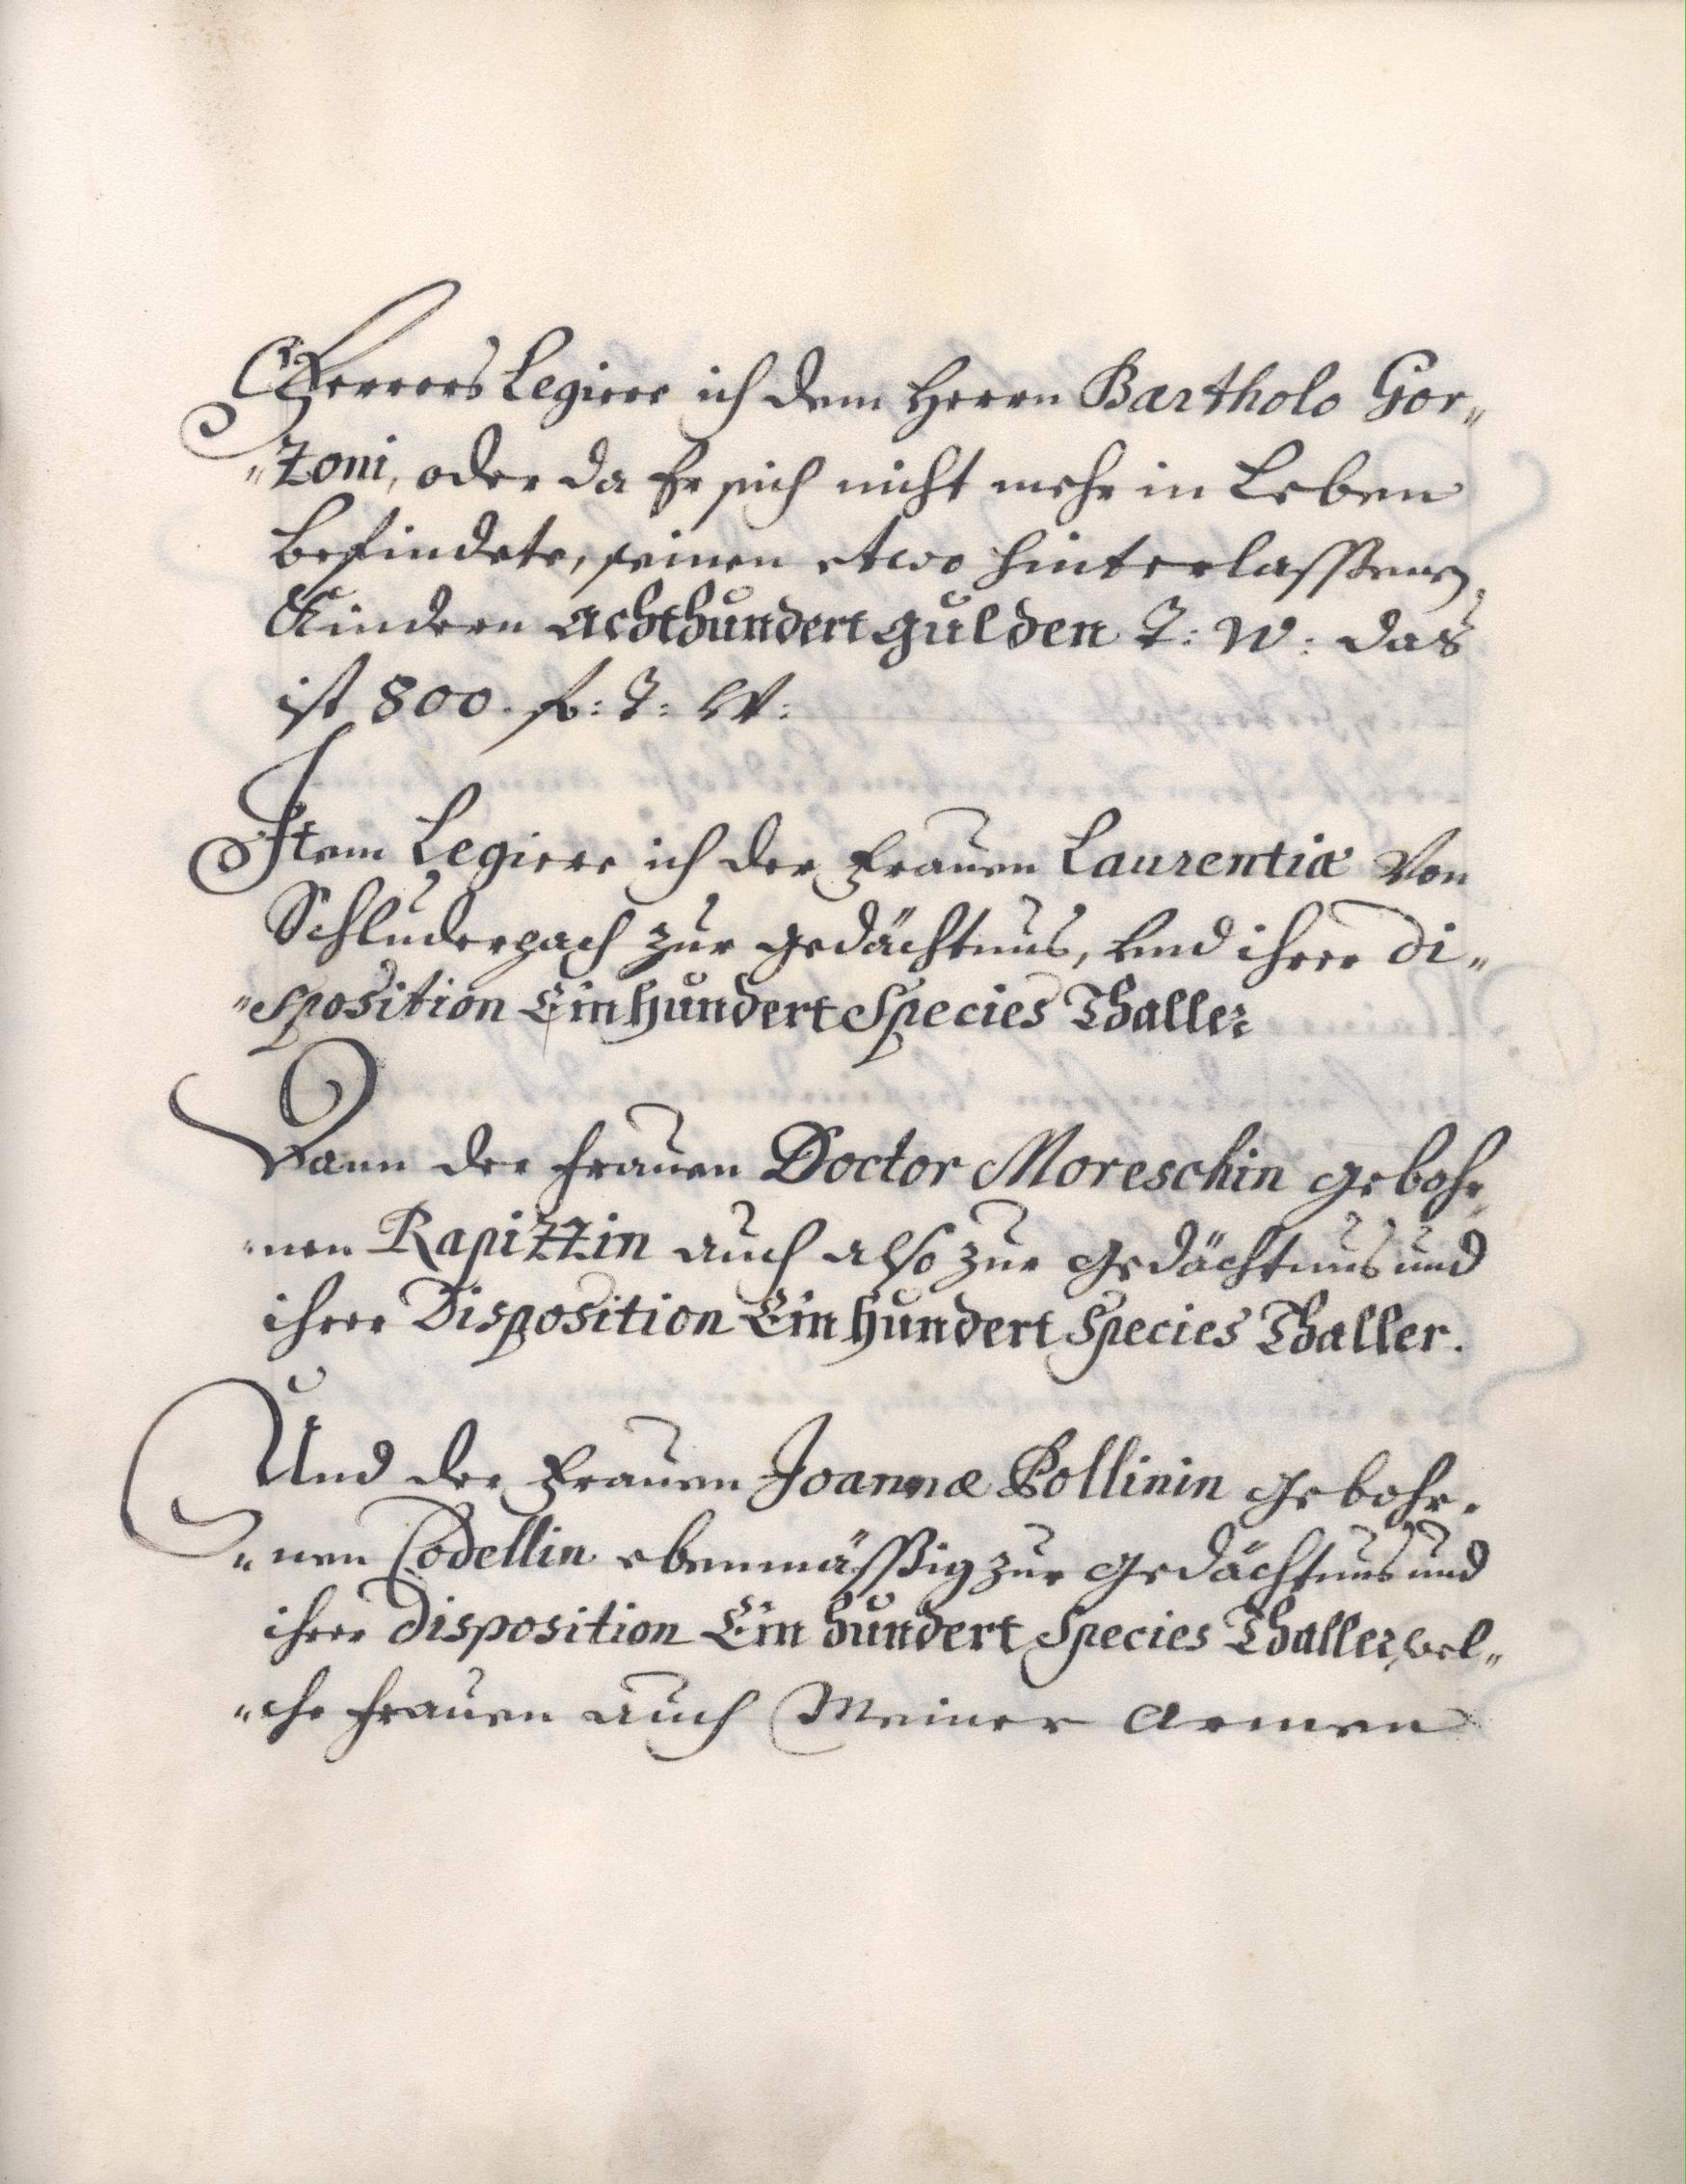 Ferrers Legiere ich dem Herrn Bartholo Gor„
„zoni, oder da Er sich nicht mehr in Leben
befindete, seinen etwo hinterlassenen
Kindern Achthundert gulden T: W: das
ist 800. fl: T: W:
Item Legiere ich der Frauen Laurentiæ Von
Schluderpach zur gedächtnus, und ihrer Di„
„sposition Ein hundert Species Thaller
Dann der Frauen Doctor Moreschin gebohr„
„nen Rapizzin auch also zur gedächtnus und
ihrer Disposition Ein hundert Species Thaller.
Und der Frauen Joannæ Pollinin gebohr„
„nen Codellin ebenmässig zur gedächtnus und
ihrer Disposition Ein hundert Species Thaller, wel„
„che Frauen auch Meiner Armen